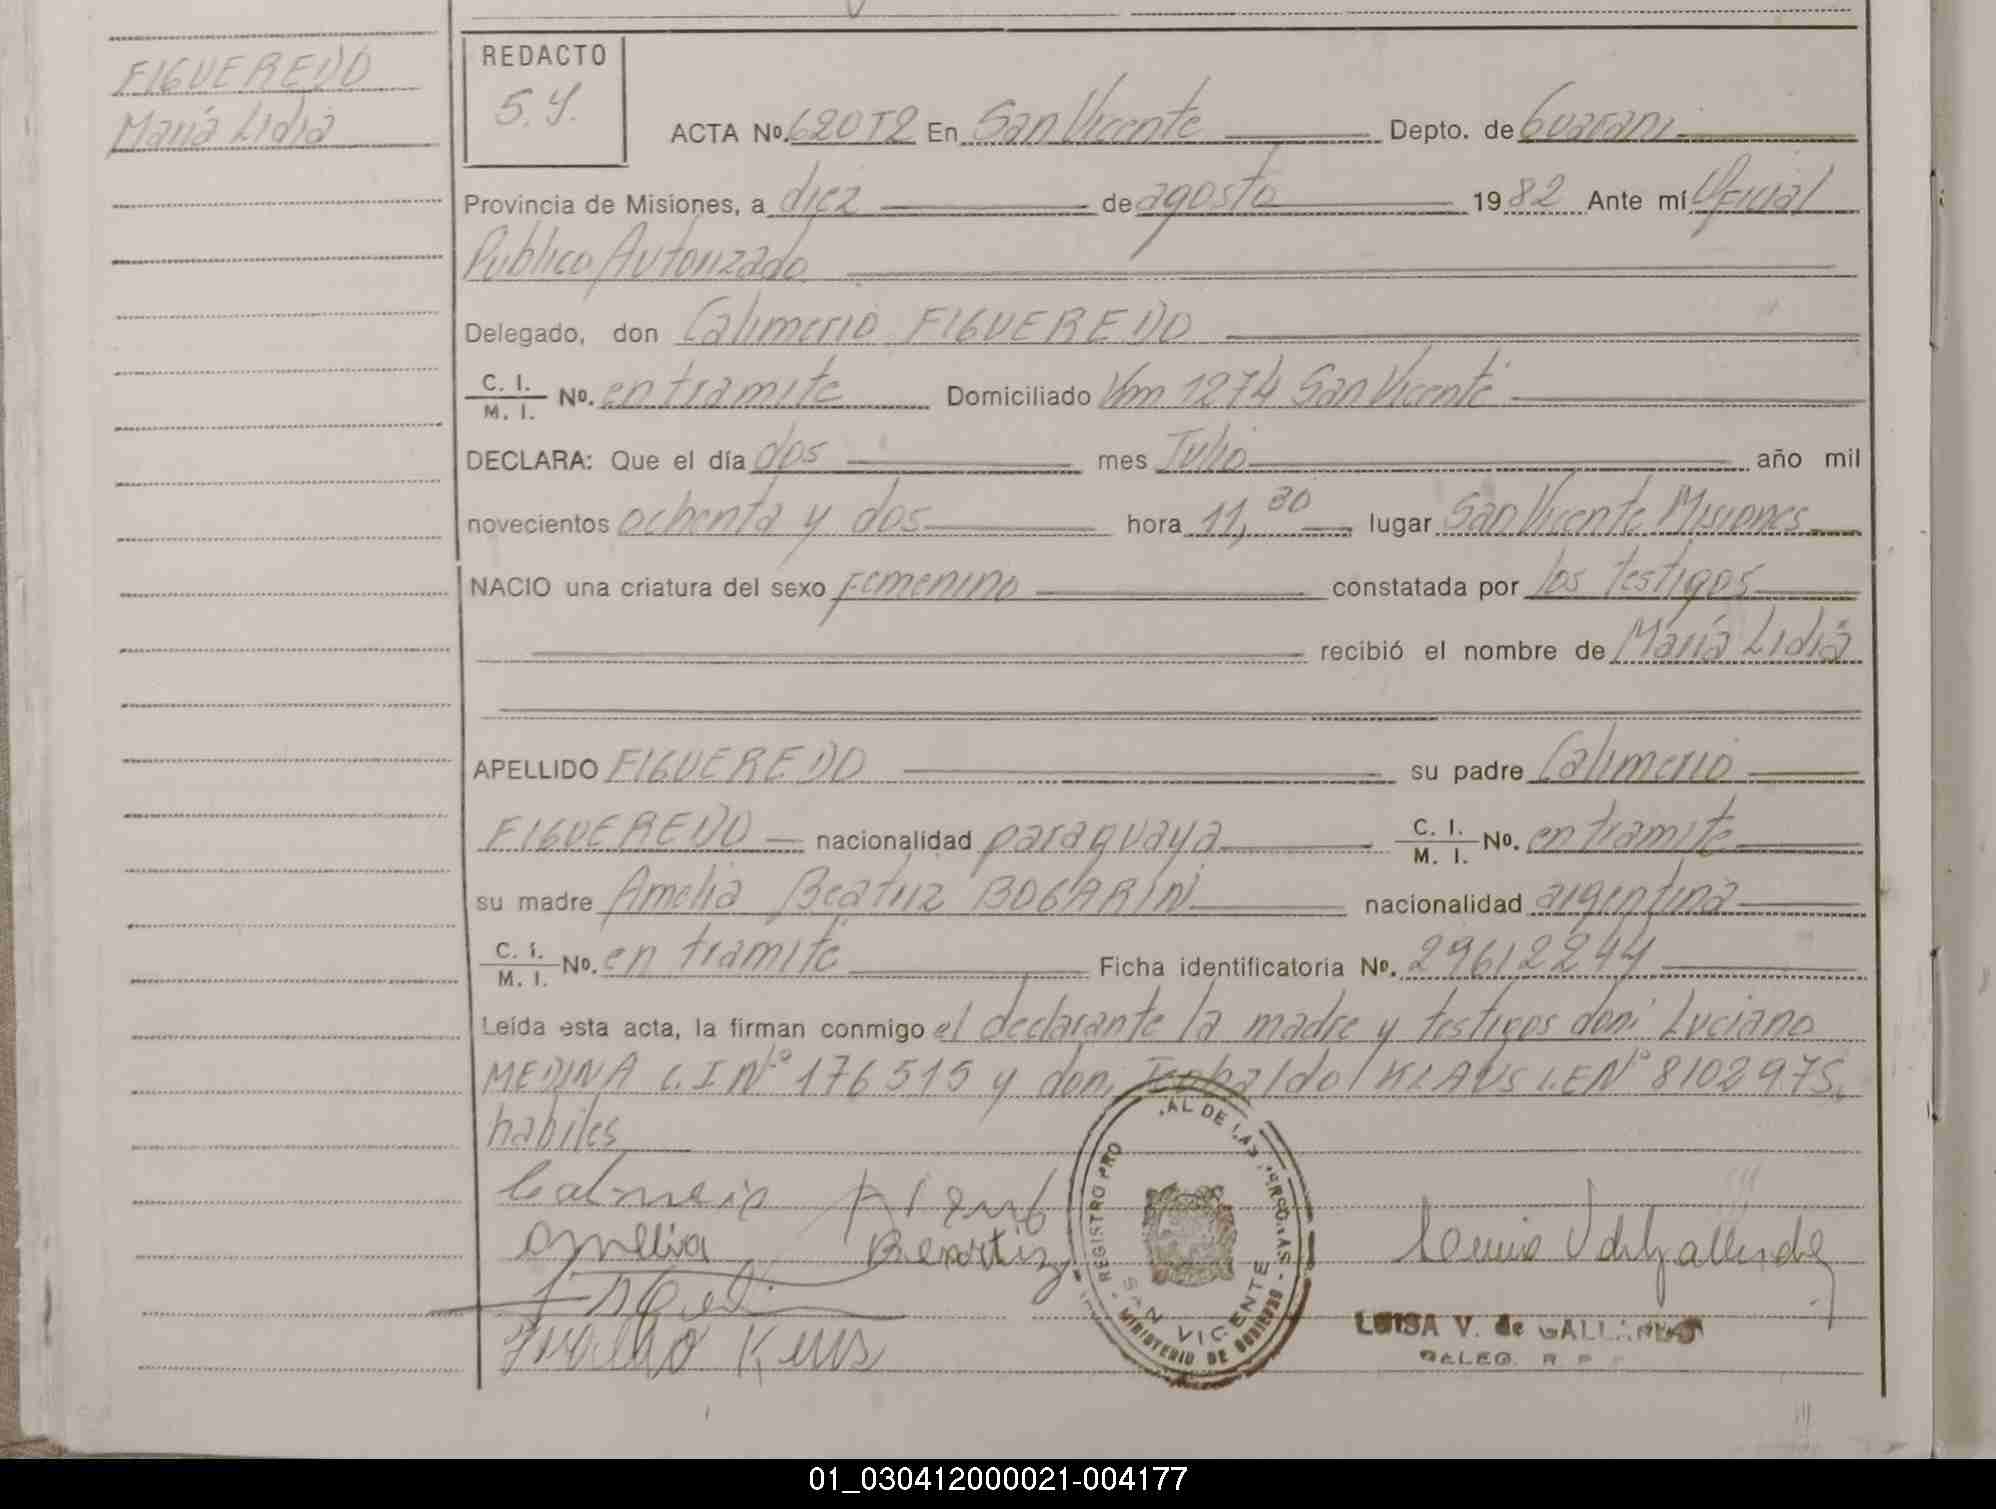 FIGUEREDO
María Lidia
REDACTO
S.Y.
ACTA Nº. 620T2 En San Vicente Depto. de Guaraní
Provincia de Misiones, a diez de agosto 1982 Ante mí Oficial
Público Autorizado
Delegado, don Calimerio FIGUEREDO
C. I. / M. I. Nº. en tramite Domiciliado Km 1274 San Vicente
DECLARA: Que el día dos mes Julio año mil
novecientos ochenta y dos hora 11,30 lugar San Vicente Misiones
NACIO una criatura del sexo Femenino constatada por los testigos
recibió el nombre de María Lidia
APELLIDO FIGUEREDO su padre Calimerio
FIGUEREDO nacionalidad paraguaya C. I. / M. I. Nº. en tramite
su madre Amelia Beatriz BOGARIN nacionalidad argentina
C. I. / M. I. Nº. en tramite Ficha identificatoria Nº. 29612244
Leída esta acta, la firman conmigo el declarante la madre y testigos don: Luciano
MEDINA C.I Nº 176515 y don: KLAUS L.E Nº 8102975.
habiles
Amelia Beartiz
REGISTRO PRO AL DE LAS PERSONAS - MINISTERIO DE GOBIERNO -
SAN VICENTE
LUISA V. de GALLARDO
DELEG. R. P.
01_030412000021-004177